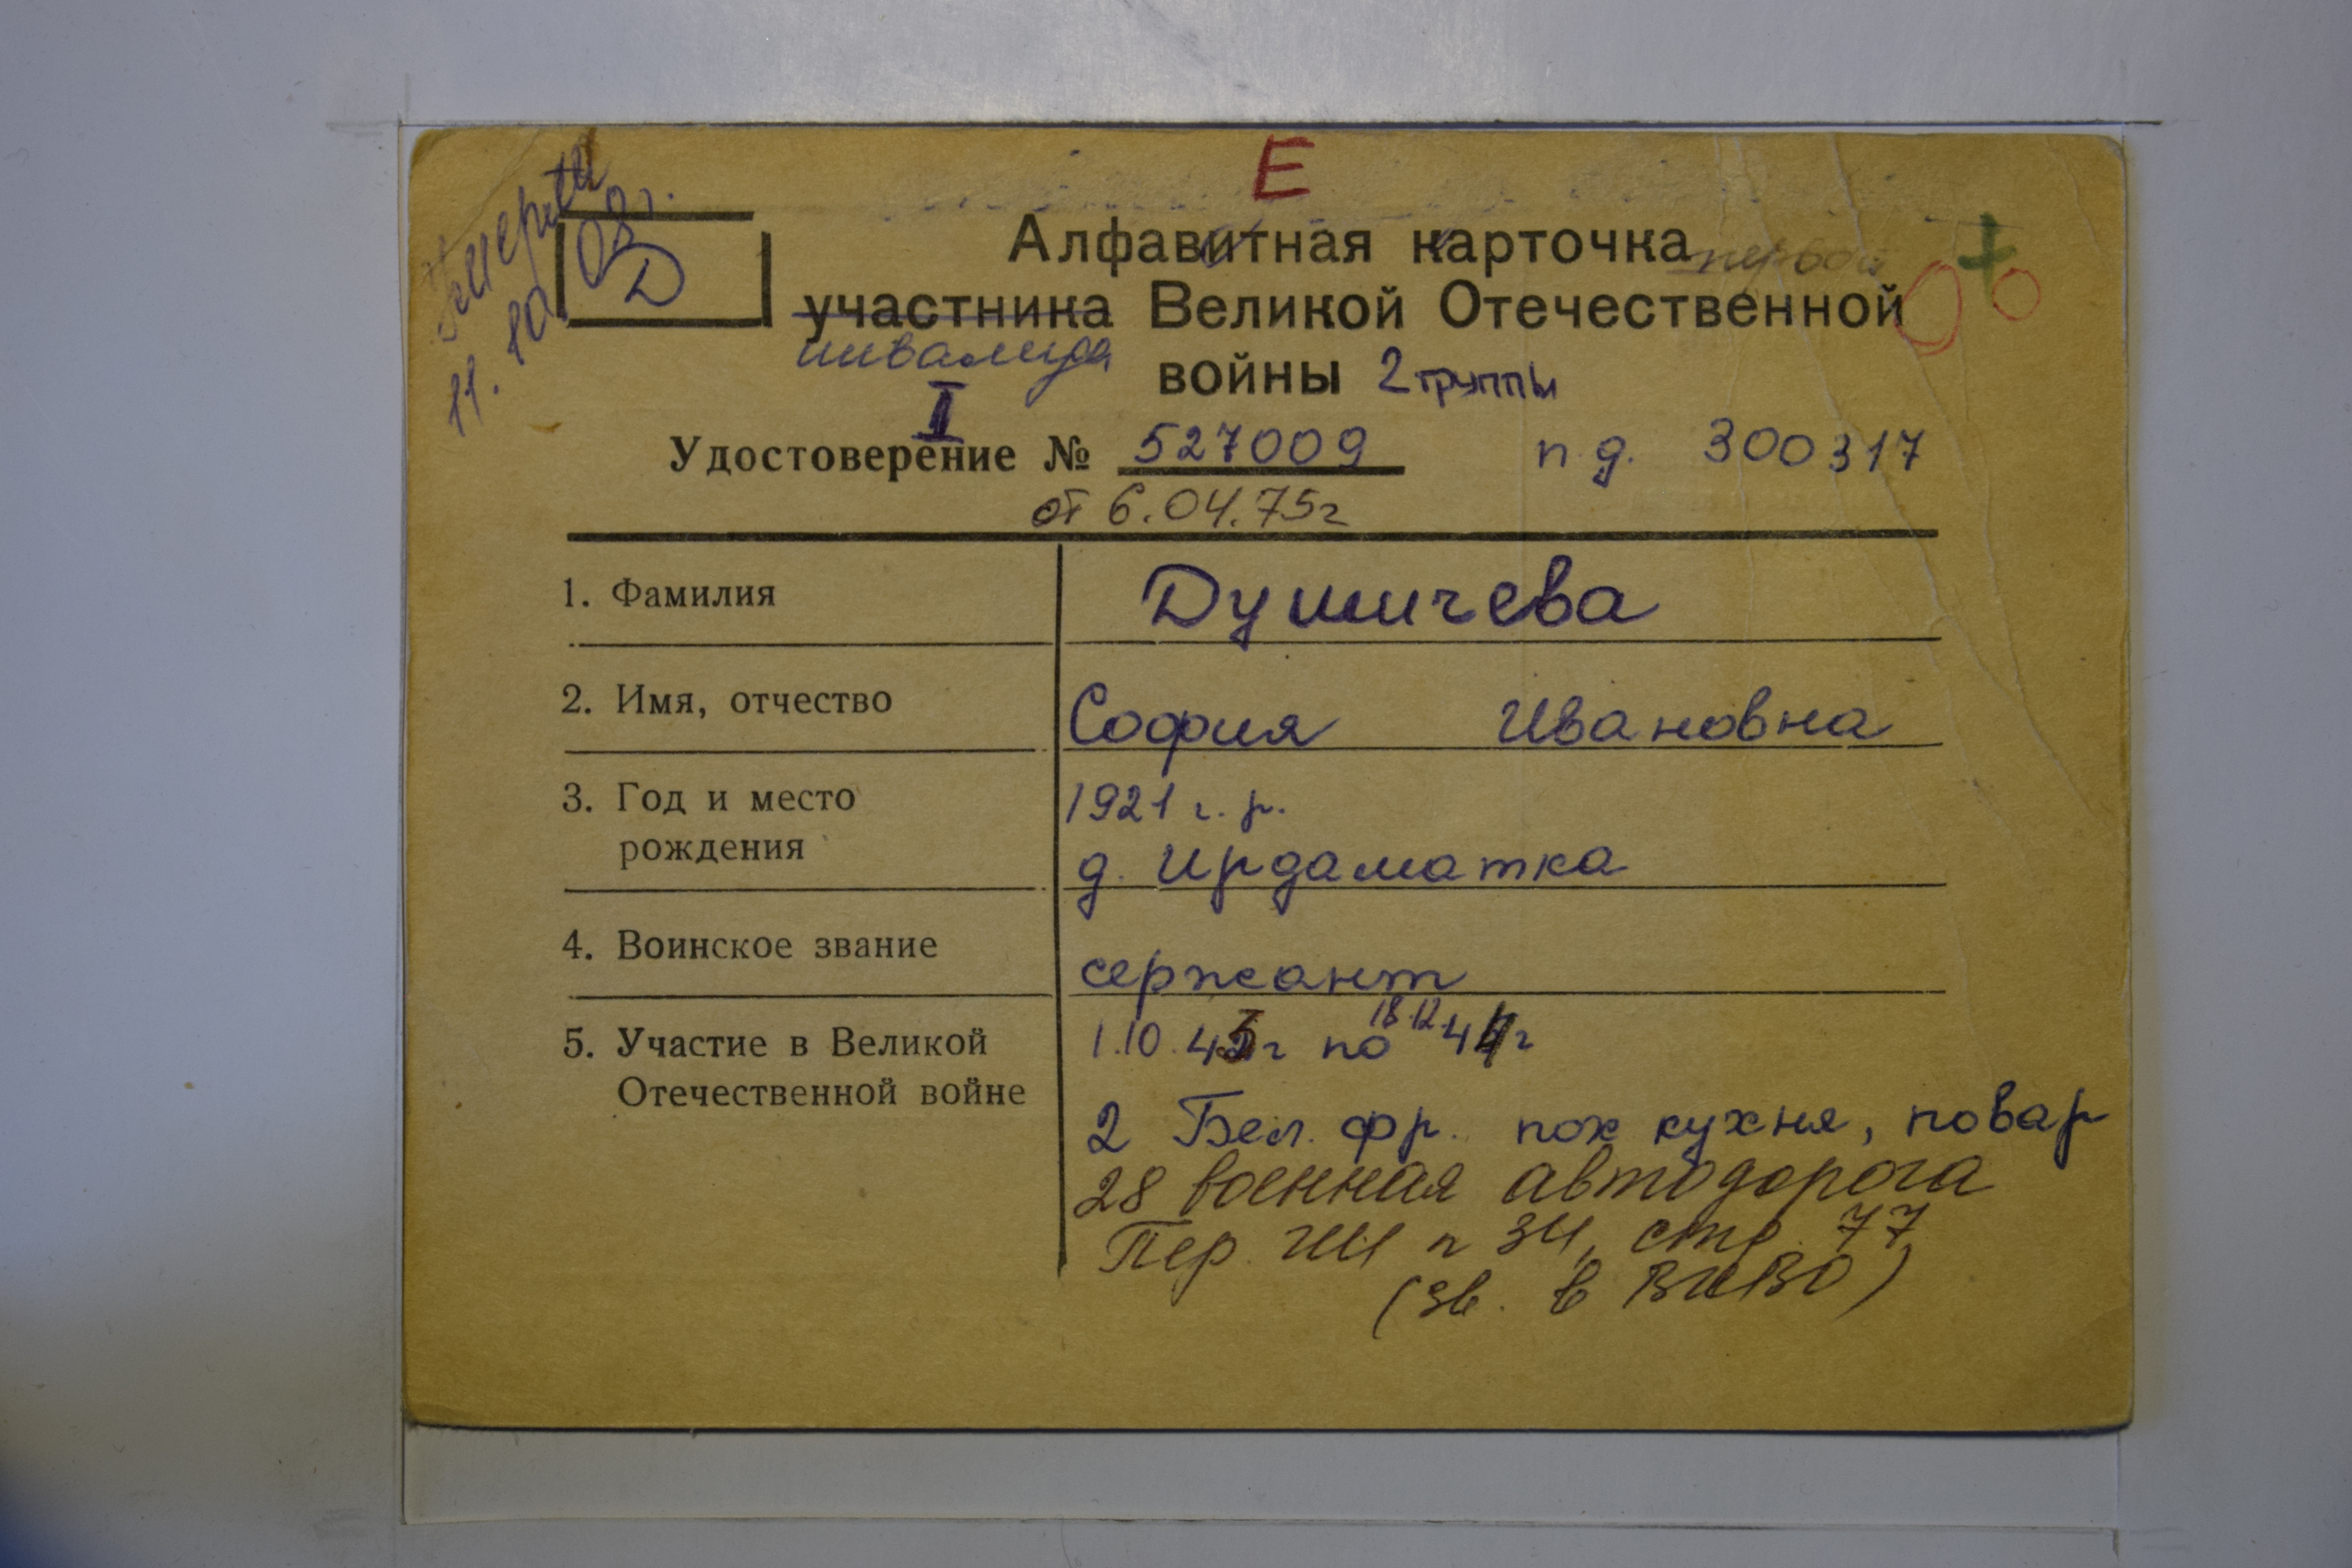 Умерла
11.10.08г.
Е
Д
Алфавитная карточка первой
участника Великой Отечественной
инвалида
войны 2 группы
I
Удостоверение № 527009 п.д. 300317
от 6.04.75г
1. Фамилия Душичева
2. Имя, отчество София Ивановна
3. Год и место 1921 г.р.
рождения д. Ирдаматка
4. Воинское звание сержант
18.12
5. Участие в Великой 1.10.43г по 44г
Отечественной войне
2 Бел. фр. пох кухня, повар
28 военная автодорога
Пер. № 34, стр. 77
(зв. в)